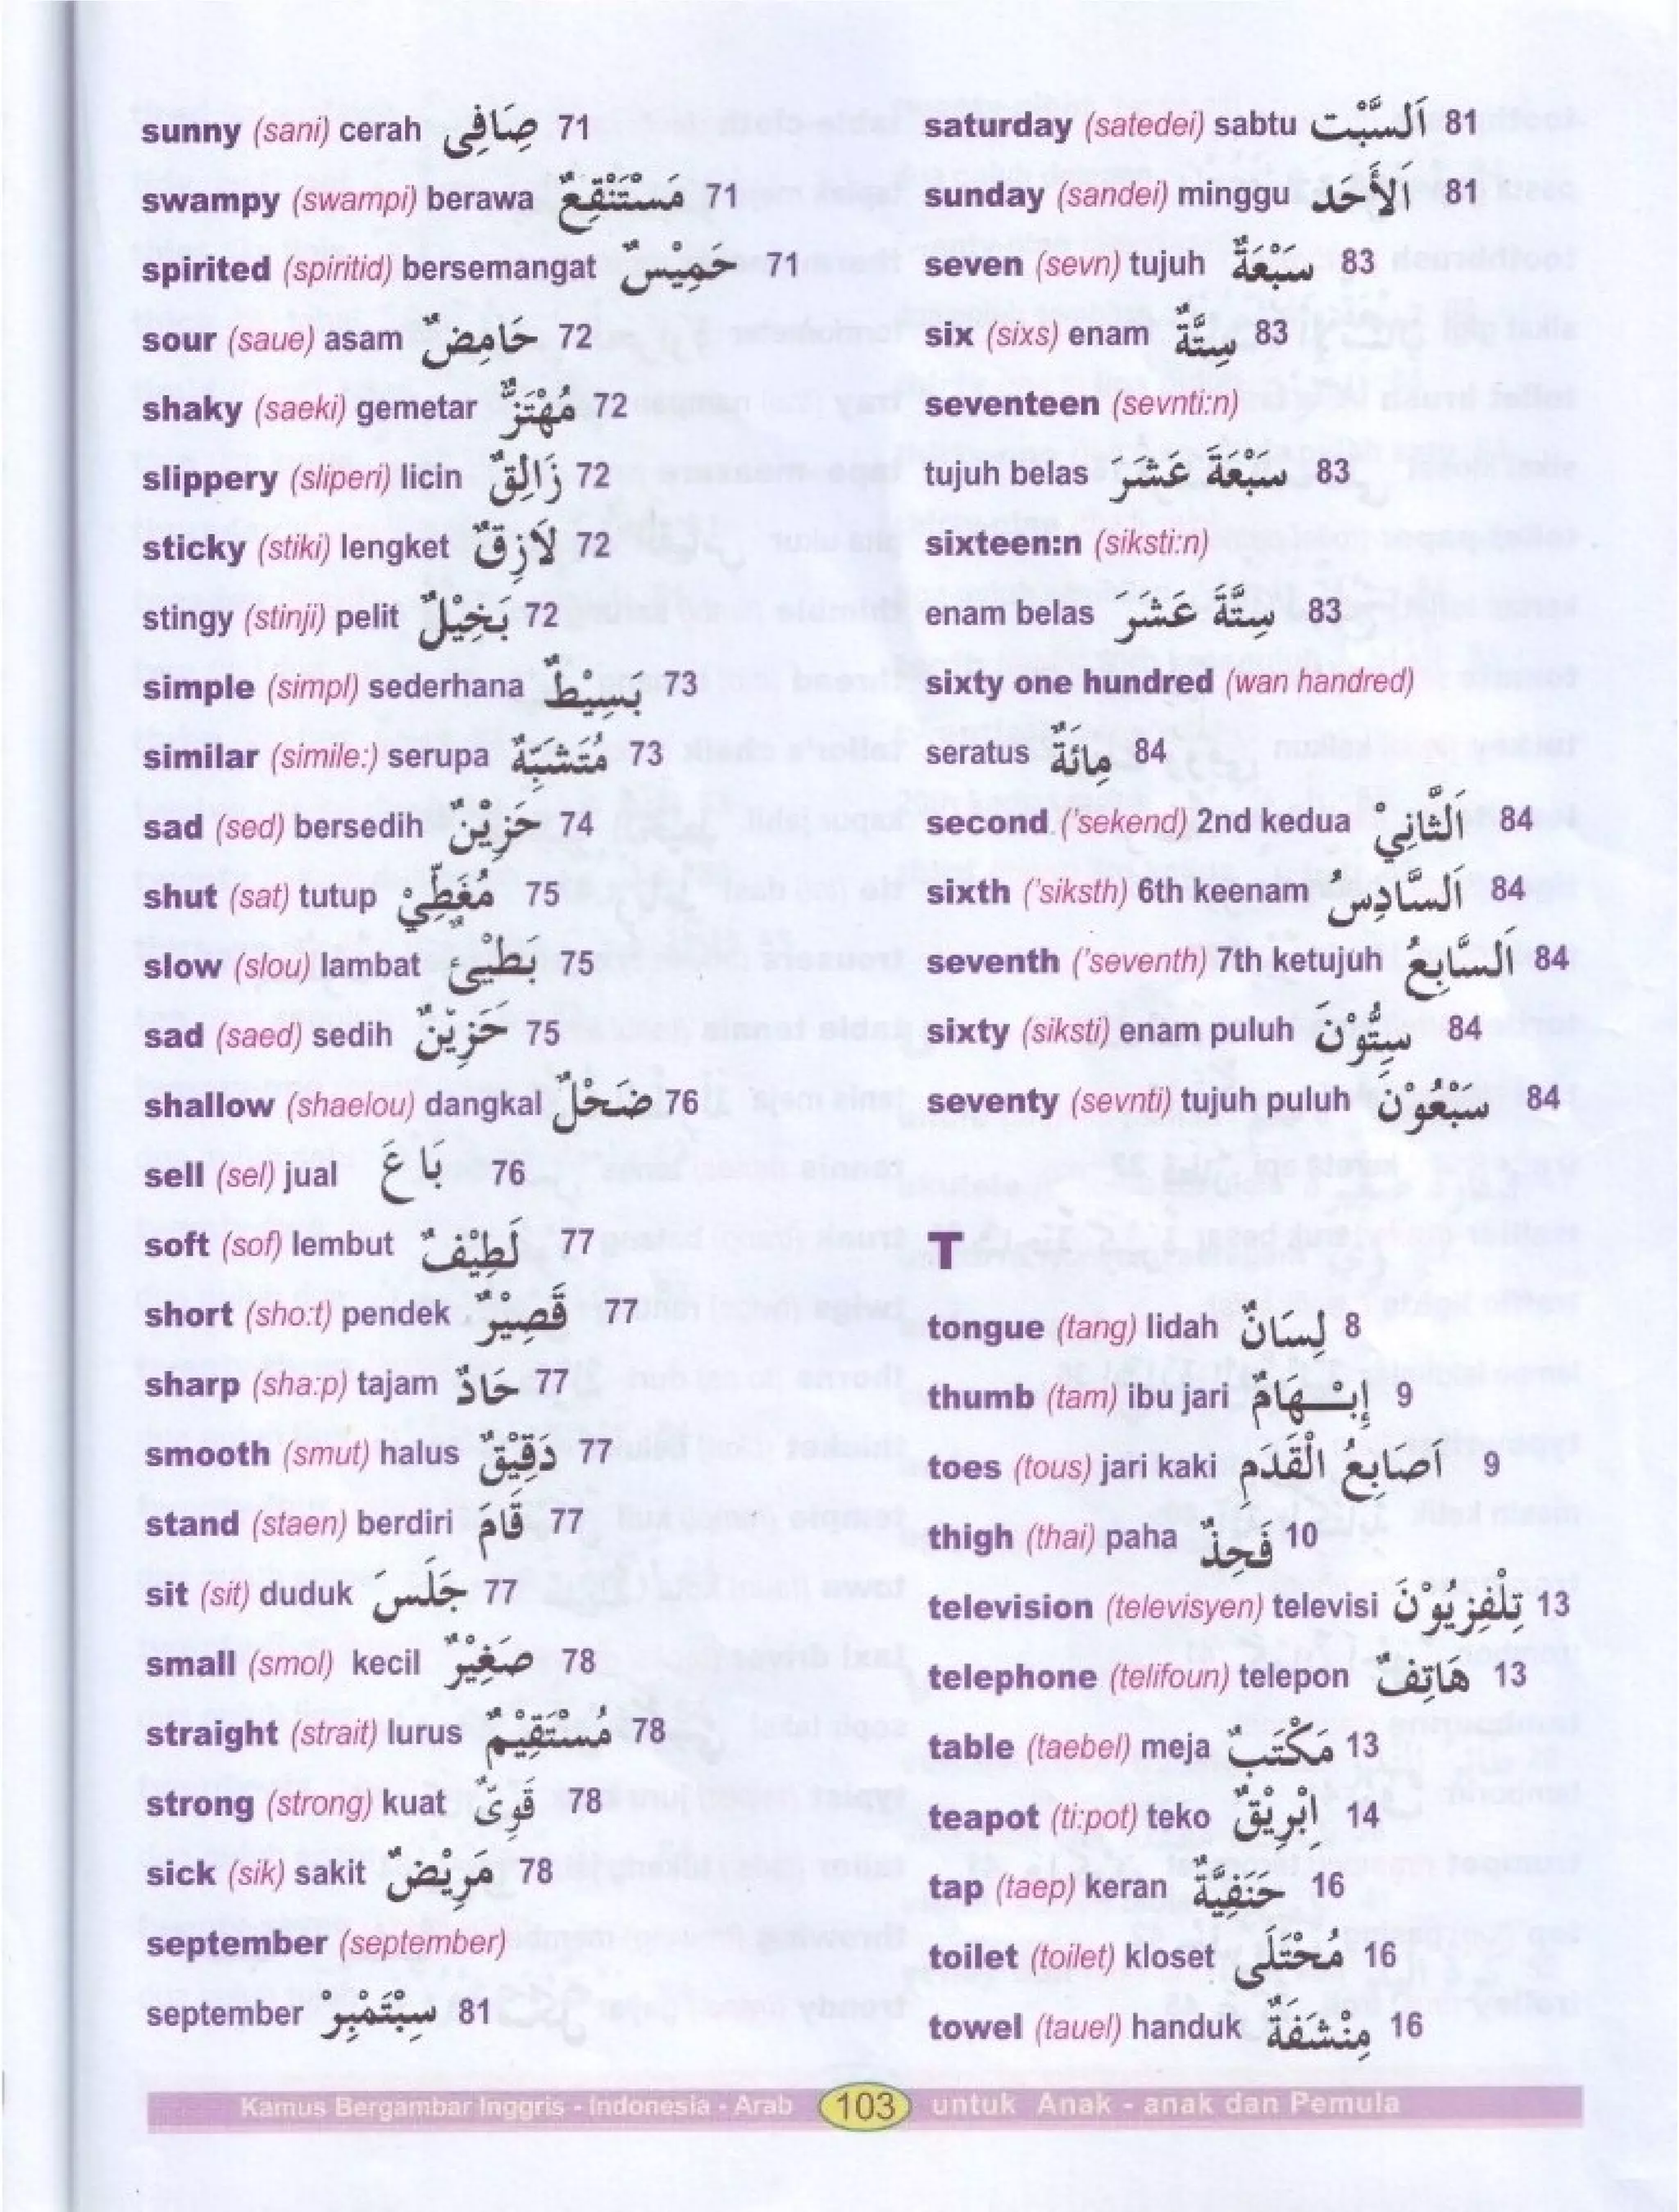 sunny (sani) cerah صَافِى 71
swampy (swampi) berawa مَسْتَنْقِعٌ 71
spirited (spiritid) bersemangat حَمِيْسٌ 71
sour (saue) asam حَامِضٌ 72
shaky (saeki) gemetar مُهْتَزٌّ 72
slippery (sliperi) licin زَالِقٌ 72
sticky (stiki) lengket لاَزِقٌ 72
stingy (stinji) pelit بَخِيْلٌ 72
simple (simpl) sederhana بَسِيْطٌ 73
similar (simile:) serupa مُتَشَبِّهٌ 73
sad (sed) bersedih حَزِيْنٌ 74
shut (sat) tutup مُغَطِّيْ 75
slow (slou) lambat بَطْيِئٌ 75
sad (saed) sedih حَزِيْنٌ 75
shallow (shaelou) dangkal ضَحْلٌ 76
sell (sel) jual بَاعَ 76
soft (sof) lembut لَطِيْفٌ 77
short (sho:t) pendek قَصِيْرٌ 77
sharp (sha:p) tajam حَادٌ 77
smooth (smut) halus دَقِيْقٌ 77
stand (staen) berdiri قَامَ 77
sit (sit) duduk جَلَسَ 77
small (smol) kecil صَغِيْرٌ 78
straight (strait) lurus مُسْتَقِيْمٌ 78
strong (strong) kuat قَوِيٌ 78
sick (sik) sakit مَرِيْضٌ 78
september (september)
september سِبْتَمْبِرْ 81
saturday (satedei) sabtu اَلسَّبْتْ 81
sunday (sandei) minggu اَلأَحَدْ 81
seven (sevn) tujuh سَبْعَةٌ 83
six (sixs) enam سِتَّةٌ 83
seventeen (sevnti:n)
tujuh belas سَبْعَةَ عَشَرَ 83
sixteen:n (siksti:n)
enam belas سِتَّةَ عَشَرَ 83
sixty one hundred (wan handred)
seratus مِائَةٌ 84
second ('sekend) 2nd kedua اَلثَّانِيْ 84
sixth ('siksth) 6th keenam اَلسَّادِسُ 84
seventh ('seventh) 7th ketujuh اَلسَّابِعُ 84
sixty (siksti) enam puluh سِتُّوْنَ 84
seventy (sevnti) tujuh puluh سَبْعُوْنَ 84
T
tongue (tang) lidah لِسَانٌ 8
thumb (tam) ibu jari إِبْـهَامٌ 9
toes (tous) jari kaki اَصَابِعُ الْقَدَمِ 9
thigh (thai) paha فَحِذٌ 10
television (televisyen) televisi تِلْفِزِيُوْنَ 13
telephone (telifoun) telepon هَاتِفٌ 13
table (taebel) meja مَكْتَبٌ 13
teapot (ti:pot) teko اِبْرِيْقٌ 14
tap (taep) keran حَنَفِيَّةٌ 16
toilet (toilet) kloset مُحْتَلَى 16
towel (tauel) handuk مِنْشَفَةٌ 16
Kamus Bergambar Inggris - Indonesia - Arab 103 untuk Anak - anak dan Pemula